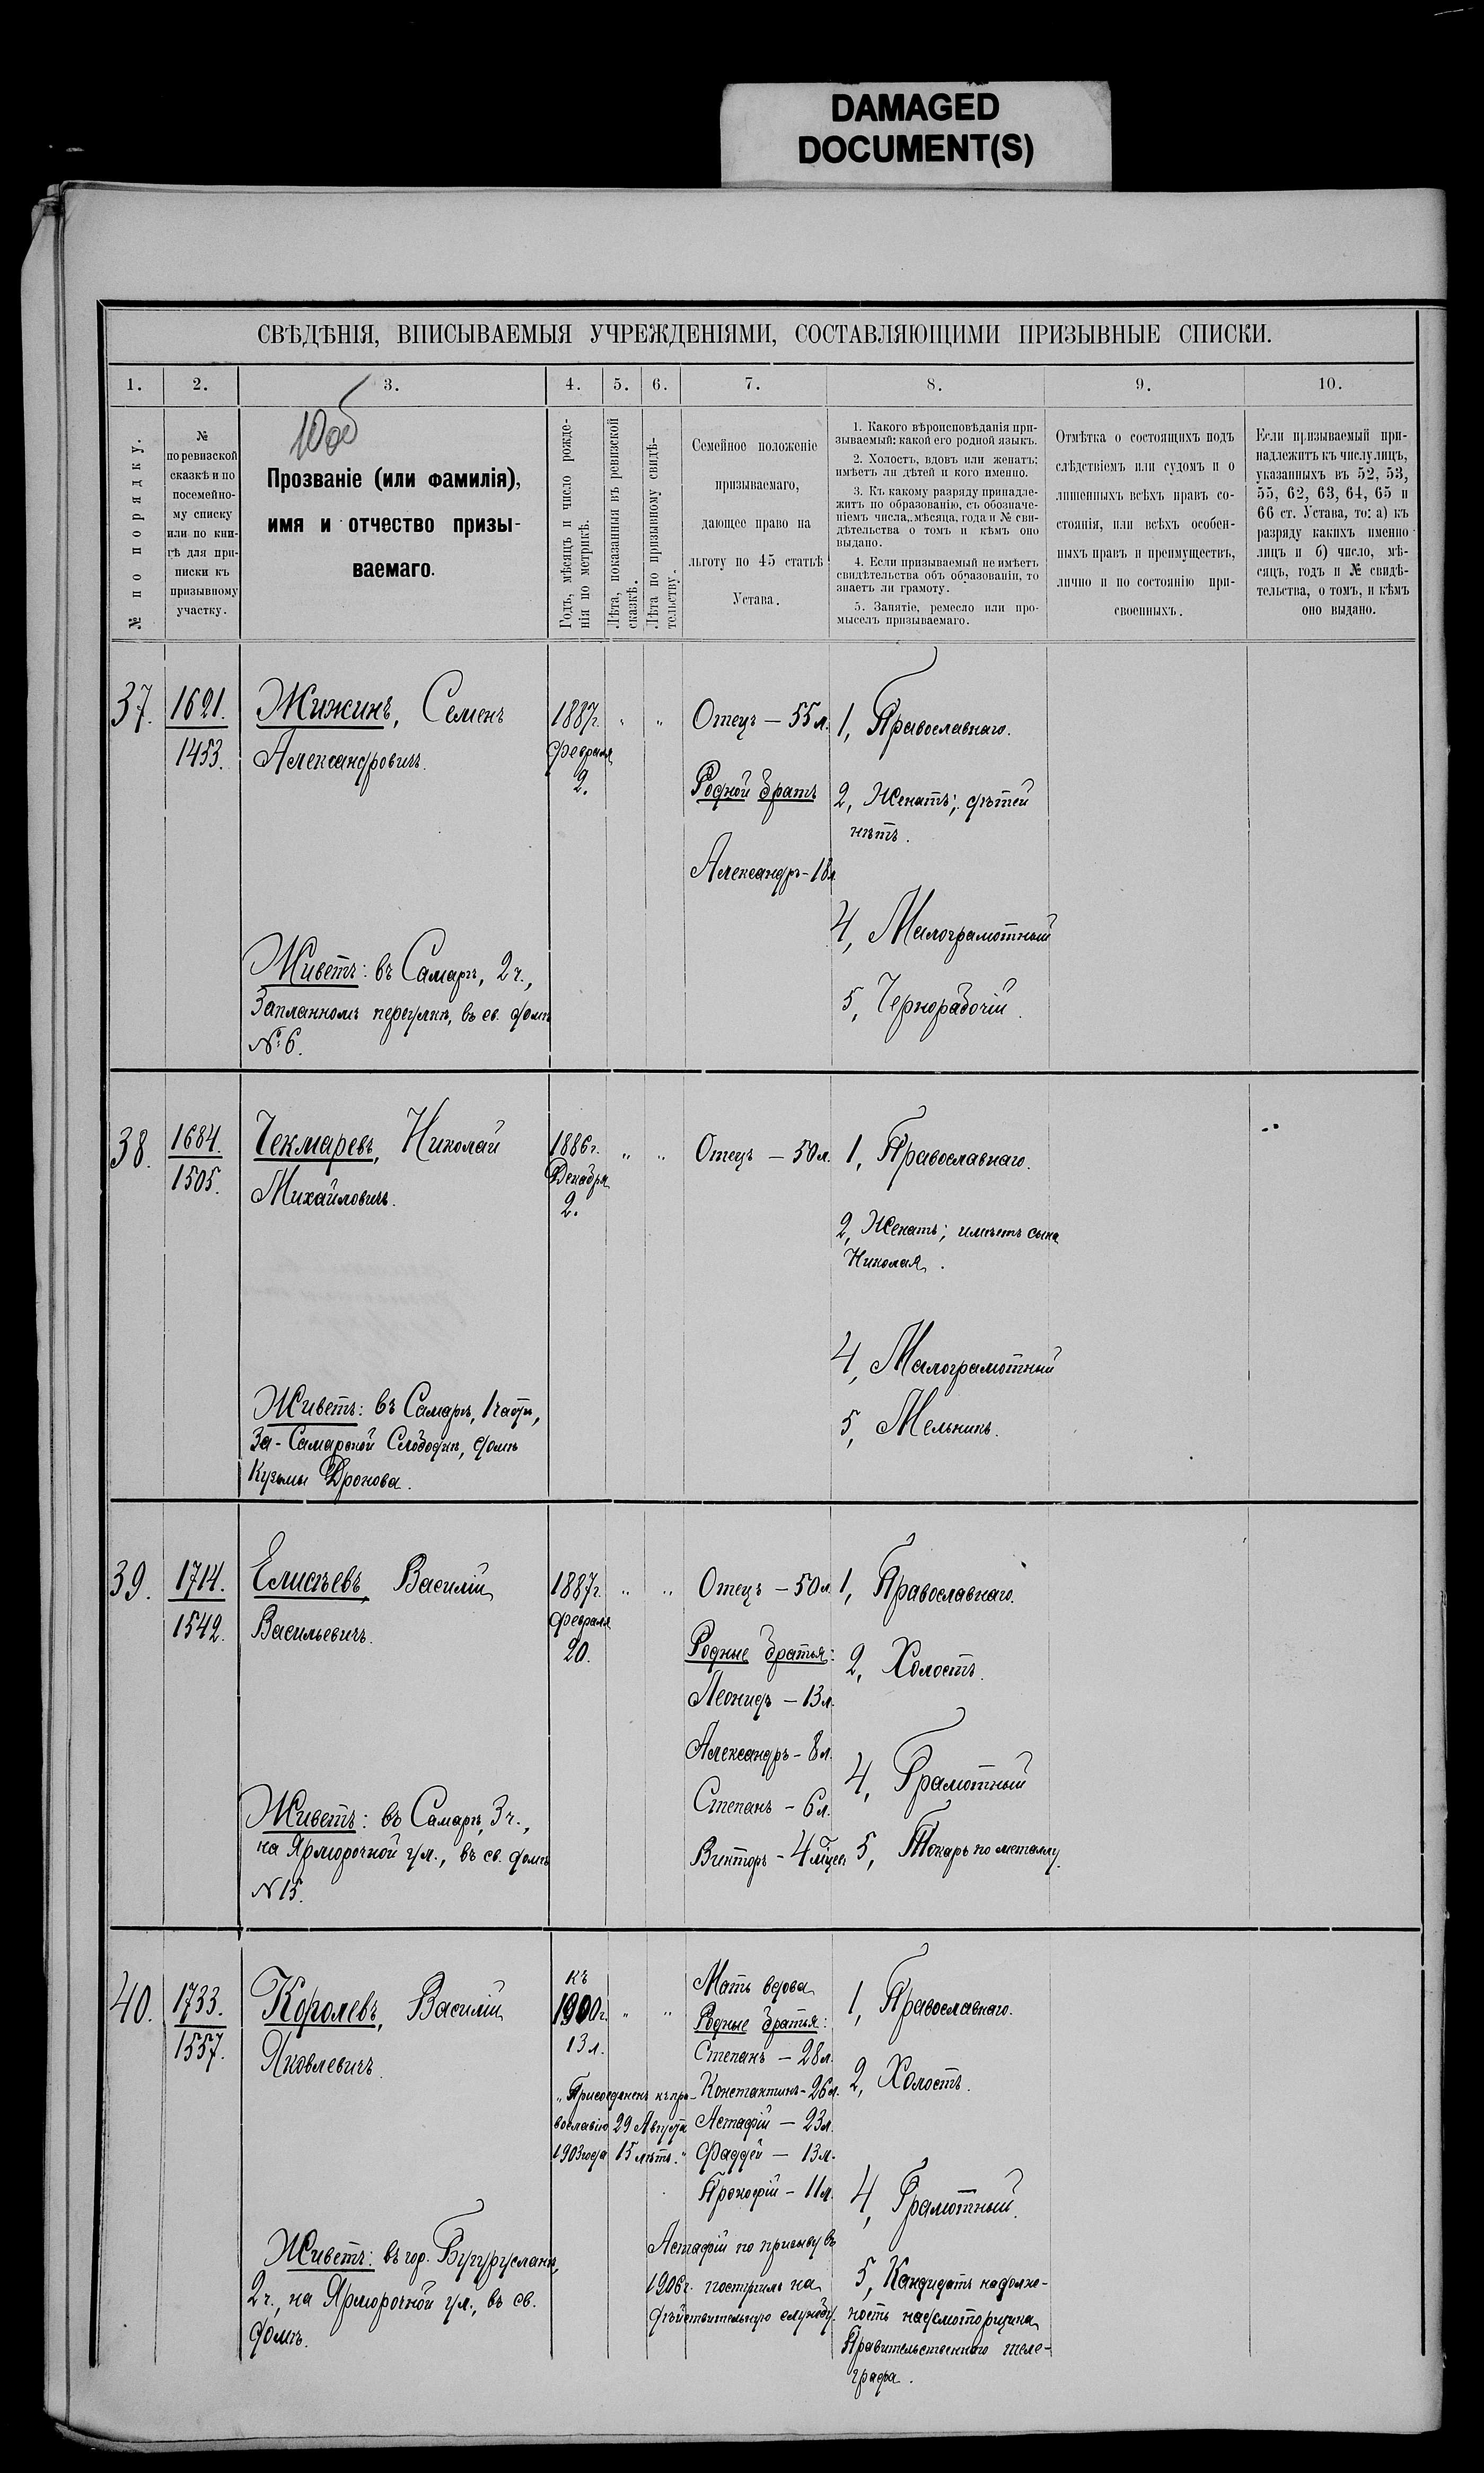 DAMAGED
DOCUMENT(S)
СВѢДѢНІЯ, ВПИСЫВАЕМЫЯ УЧРЕЖДЕНІЯМИ, СОСТАВЛЯЮЩИМИ ПРИЗЫВНЫЕ СПИСКИ.
1. 2. 3. 4. 5. 6. 7. 8. 9. 10.
№ по порядку.
№
по ревизской
сказкѣ и по
посемейно-
му списку
или по кни-
гѣ для при-
писки къ
призывному
участку.
Прозваніе (или фамилія),
имя и отчество призы-
ваемаго.
Годъ, мѣсяцъ и число рожде-
нія по метрикѣ.
Лѣта, показанныя въ ревизской
сказкѣ.
Лѣта по призывному свидѣ-
тельству.
Семейное положеніе
призываемаго,
дающее право на
льготу по 45 статьѣ
Устава.
1. Какого вѣроисповѣданія при-
зываемый: какой его родной языкъ.
2. Холостъ, вдовъ или женатъ:
имѣетъ ли дѣтей и кого именно.
3. Къ какому разряду принадле-
житъ по образованію, съ обозначе-
ніемъ числа, мѣсяца, года и № сви-
дѣтельства о томъ и кѣмъ оно
выдано.
4. Если призываемый не имѣетъ
свидѣтельства объ образованіи, то
знаетъ ли грамоту.
5. Занятіе, ремесло или про-
мыселъ призываемаго.
Отмѣтка о состоящихъ подъ
слѣдствіемъ или судомъ и о
лишенныхъ всѣхъ правъ со-
стоянія, или всѣхъ особен-
ныхъ правъ и преимуществъ,
лично и по состоянію при-
своенныхъ.
Если призываемый при-
надлежитъ къ числу лицъ,
указанныхъ въ 52, 53,
55, 62, 63, 64, 65 и
66 ст. Устава, то: а) къ
разряду какихъ именно
лицъ и б) число, мѣ-
сяцъ, годъ и № свидѣ-
тельства, о томъ, и кѣмъ
оно выдано.
37.
1621.
1453.
Жижинъ, Семенъ
Александровичъ.
Живетъ: въ Самарѣ, 2 ч.,
Запланномъ переулкѣ, въ св. домѣ
№ 6.
1887 г.
Февраля
2.
" "
Отецъ — 55 л.
Родной братъ
Александръ - 18 л.
1, Православнаго.
2, Женатъ; дѣтей
нѣтъ.
4, Малограмотный
5, Чернорабочій.
38.
1684.
1505.
Чекмаревъ, Николай
Михайловичъ.
Живетъ: въ Самарѣ, 1 части,
За-Самарской Слободкѣ, домѣ
Кузьмы Дронова.
1886 г.
Декабря
2.
" "
Отецъ — 50 л.
1, Православнаго.
2, Женатъ; имѣетъ сына
Николая.
4, Малограмотный
5, Мельникъ.
39.
1714.
1542.
Елисѣевъ, Василій
Васильевичъ.
Живетъ: въ Самарѣ, 3 ч.,
на Ярморочной ул., въ св. домѣ
№ 15.
1887 г.
Февраля
20.
" "
Отецъ — 50 л.
Родные братья:
Леонидъ — 13 л.
Александръ - 8 л.
Степанъ - 6 л.
Викторъ - 4 мѣсец.
1, Православнаго.
2, Холостъ.
4, Грамотный
5, Токарь по металлу.
40.
1733.
1557.
Королевъ, Василій
Яковлевичъ.
Живетъ: въ гор. Бугурусланѣ,
2 ч., на Ярморочной ул., въ св.
домѣ.
къ
1900 г.
13 л.
" "
„Присоединенъ къ пра-
вославію 29 Августа
1903 года 15 лѣтъ."
Мать вдова
Родные братья:
Степанъ — 28 л.
Константинъ - 26 л.
Астафій — 23 л.
Фаддей — 13 л.
Прокофій - 11 л.
Астафій по призыву въ
1906 г. поступилъ на
дѣйствительную службу.
1, Православнаго.
2, Холостъ.
4, Грамотный.
5, Кандидатъ на долж-
ность надсмотрщика
Правительственнаго теле-
графа.